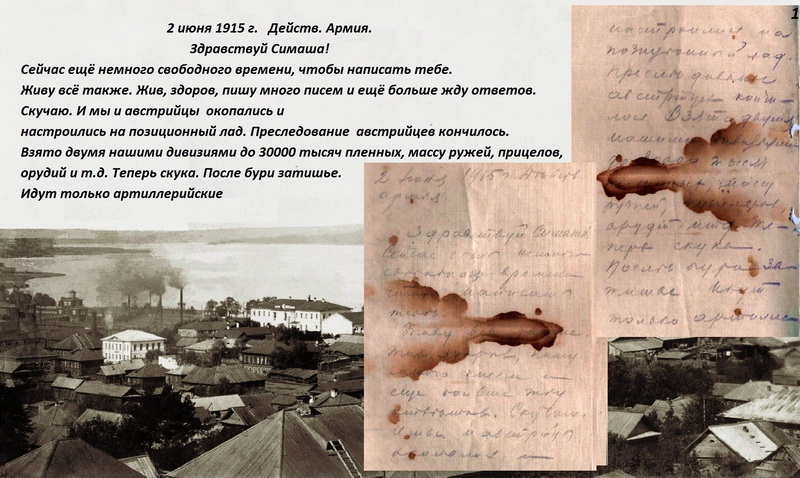 1
2 июня 1915 г. Действ. Армия.
Здравствуй Симаша!
Сейчас ещё немного свободного времени, чтобы написать тебе.
Живу всё также. Жив, здоров, пишу много писем и ещё больше жду ответов.
Скучаю. И мы и австрийцы окопались и
настроились на позиционный лад. Преследование австрийцев кончилось.
Взято двумя нашими дивизиями до 30000 тысяч пленных, массу ружей, прицелов,
орудий и т.д. Теперь скука. После бури затишье.
Идут только артиллерийские
2 1915 г. Действ.
армия
Здравствуй Симаша
Сейчас еще немного
времени
написат
тебе.
Живу
пишу
писем и
еще больше жду
ответов. Скучаю.
И мы и австрий
окопались и
настроились на
позиционный лад.
Преследование
австрийцев конч-
лось Взято двумя
нашими
массу
ружей,
орудий
перь скука.
После бури за-
тишье Идут
только артиллер